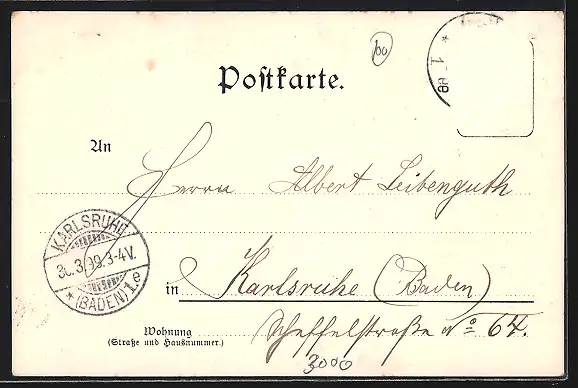 60
* 1 00
Postkarte.
An
Herrn Albert Leibenguth
KARLSRUHE
30.3.99.3-4V.
* (BADEN) 1.e
in Karlsruhe (Baden)
Wohnung
(Straße und Hausnummer.)
Scheffelstraße No 64.
3000